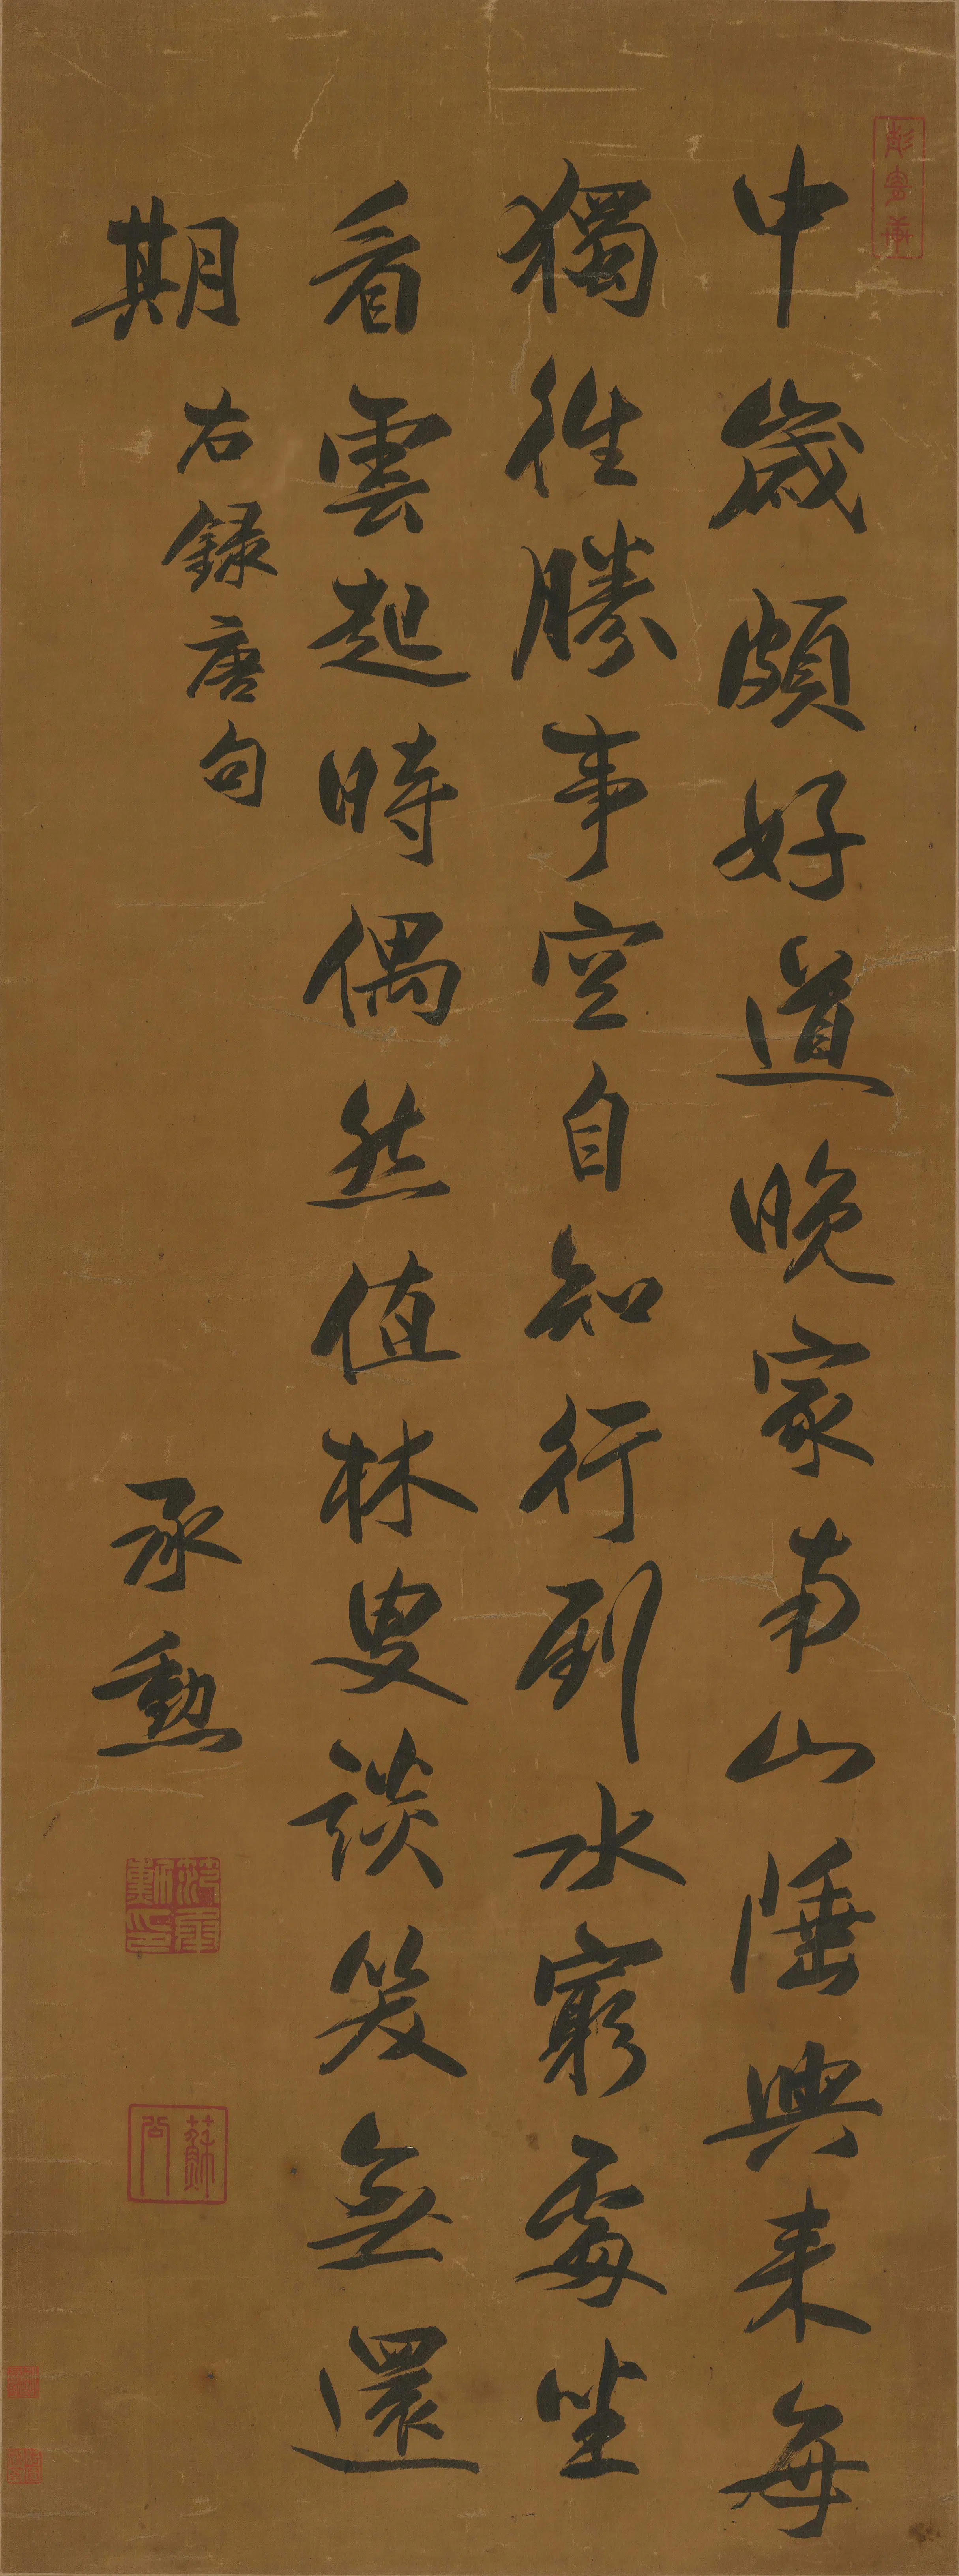 中歲頗好道晚家南山陲興來每
獨往勝事空自知行到水窮處坐
看雲起時偶然值林叟談笑無還
期
右錄唐句
承勳
蘇公